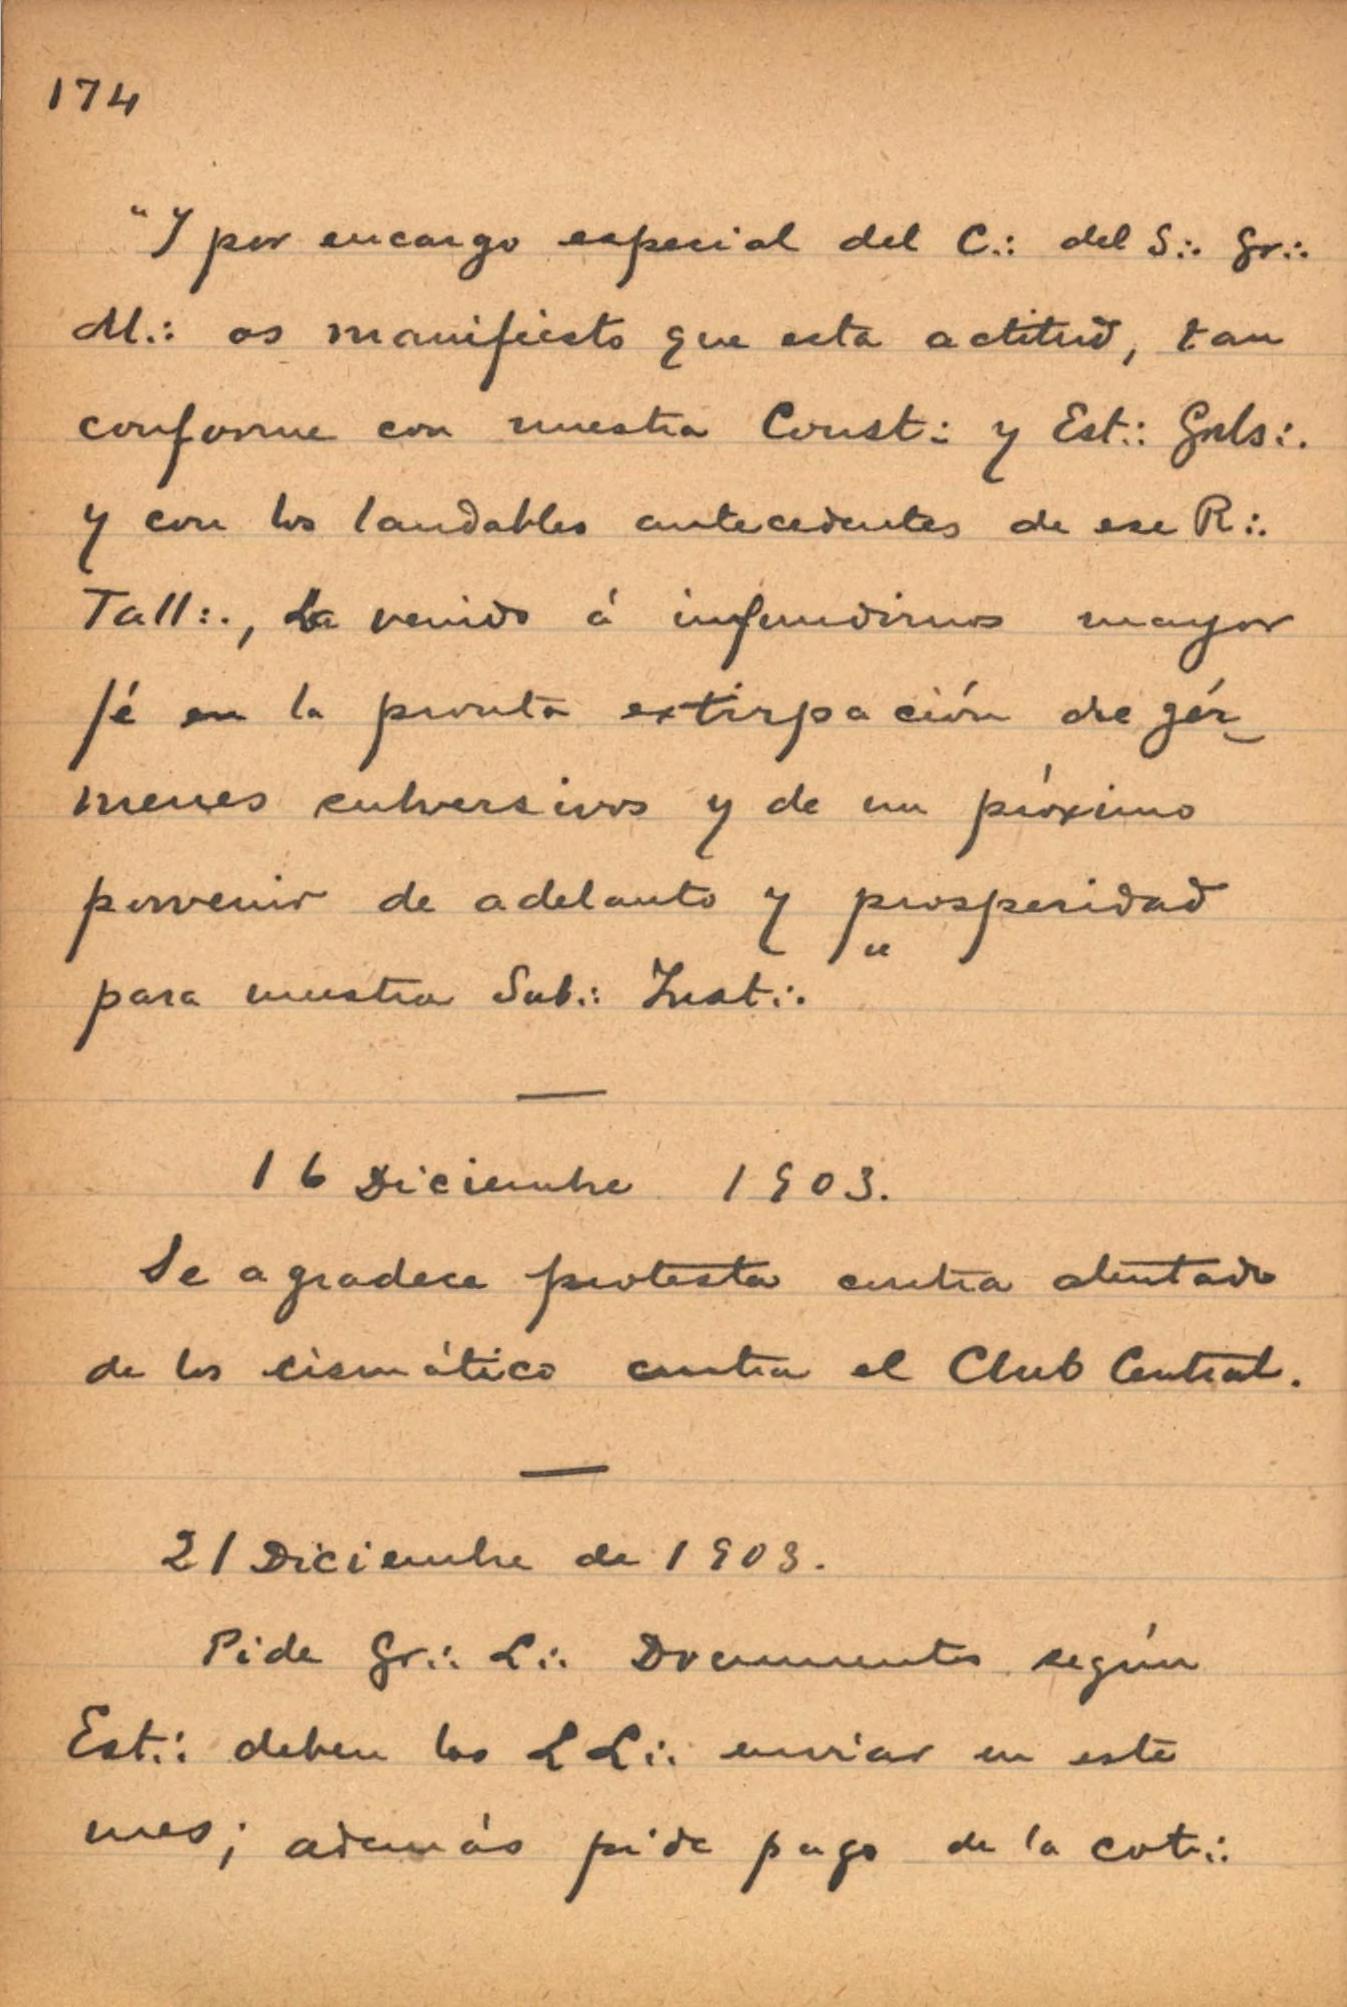 174
"Y por encargo especial del C.: del S.: Gr.:
M.: os manifiesto que esta actitud, tan
conforme con nuestra Const.: y Est.: Gnls.:
y con los laudables antecedentes de ese R.:
Tall.:, ha venido á infundirnos mayor
fé en la pronta extirpación de gér-
menes subversivos y de un próximo
porvenir de adelanto y prosperidad
para nuestra Sub.: Inst.: "
16 Diciembre 1903.
Se agradece protesta contra atentado
de los cismático contra el Club Central.
21 Diciembre de 1903.
Pide Gr.: L.: Documentos según
Est.: deben las LL.: enviar en este
mes; además pide pago de la cot.: